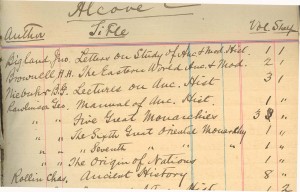 Alcove
Author Title Vol. Shelf
Bigland, Jno. Letters on Study of Anc & Mod. Hist. 1 1
Brownell, H.H. The Eastern World, Anc. & Mod. 2 "
Niebuhr B.G. Lectures on Anc. Hist 3 "
Rawlinson Geo. Manual of Anc. Hist. 1 "
" " Five Great Monarchies 3 "
" " The Sixth Great Oriental Monarchy 1 "
" " " Seventh " " " 1 "
" " The Origin of Nations 1 "
Rollin Chas. Ancient History 8 "
Hist. 1 2